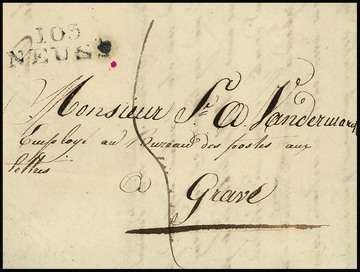 103
NEUSS
Monsieur Sr. A Vandermarck
Employé au Bureau des postes aux
lettres
a
Grave